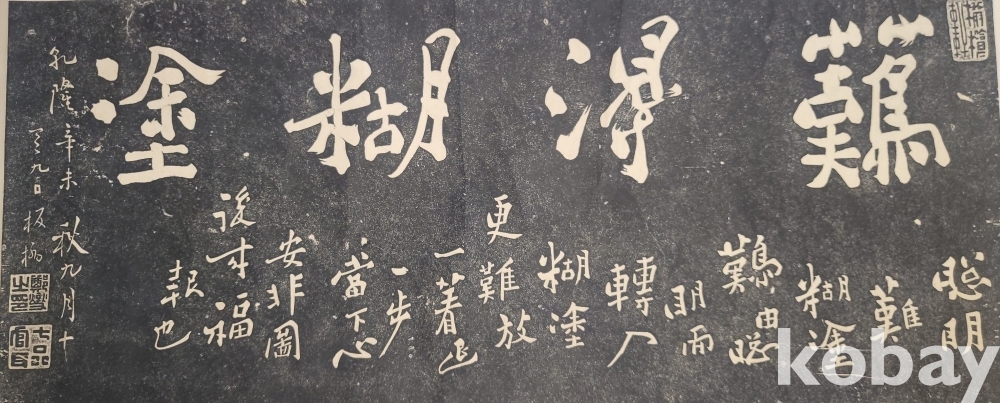 難得糊塗
聰明
難
糊塗
難由聰
明而
轉入
糊塗
更難放
一著退
一步
當下心
安非圖
後来福
報也
乾隆辛未秋九月十
有九日板橋
鄭燮之印
七品官耳
kobay